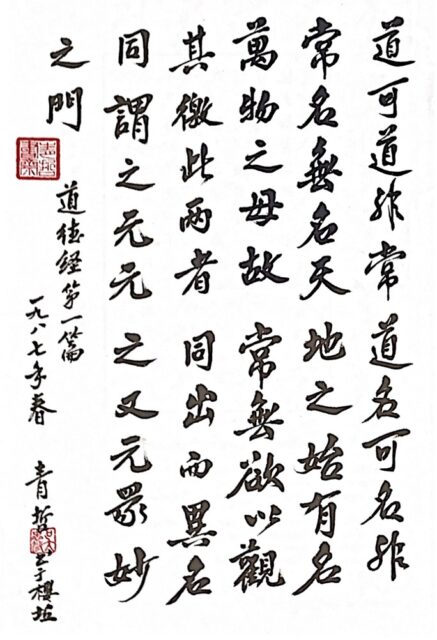 道可道非常道名可名非
常名無名天地之始有名
萬物之母故常無欲以觀
其徼此两者同出而異名
同謂之元元之又元眾妙
之門
道德經第一篇
一九八七年春
青哲書于櫻坵